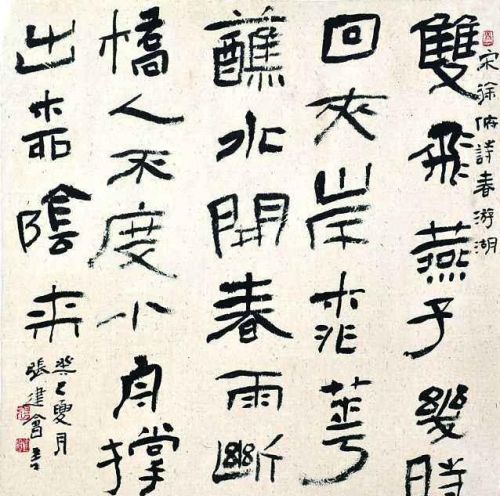 宋徐俯詩春游湖
雙飛燕子幾時
回夾岸桃華
醮水開春雨斷
橋人不度小舟撐
出柳陰來
癸巳夏月
張建會書